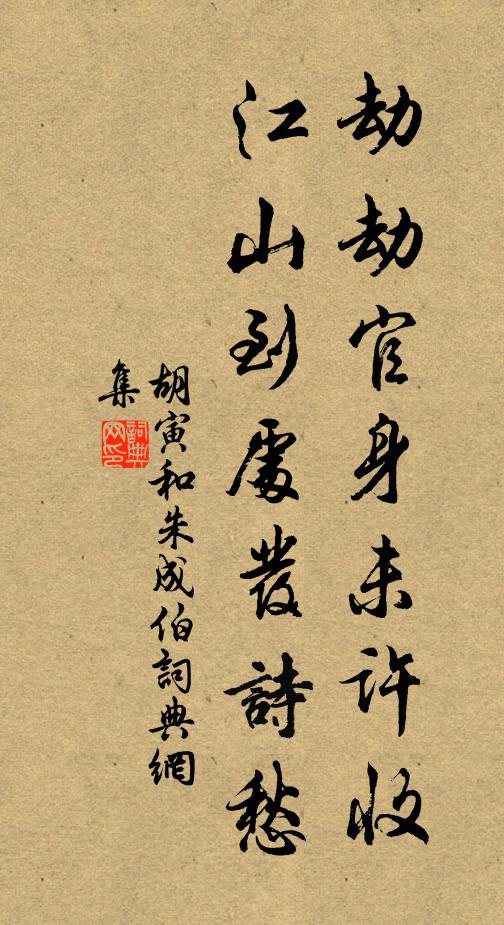 劫劫官身未許收
江山到處發詩愁
胡寅和朱成伯詞典網
集
詞典網印